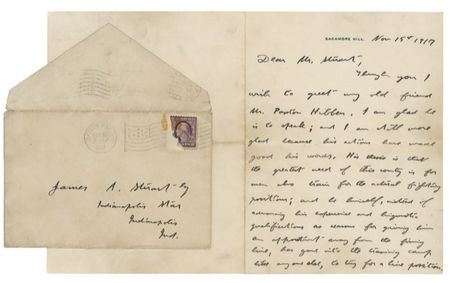 James A. Stuart Esq
Indianapolis Star
Indianapolis
Ind.
SAGAMORE HILL.
Nov 15th 1917
Dear Mr. Stuart,
Through you I
wish to greet my old friend
Mr. Paxton Hibben. I am glad he
is to speak; and I am still more
glad because his actions have made
good his words. His thesis is that
the greatest need of this country is for
men who train for the actual fighting
positions; and he himself, instead of
advancing his experience and linguistic
qualifications as reasons for giving him
an appointment away from the firing
line, has gone into the training camp
like anyone else, to try for a line position.